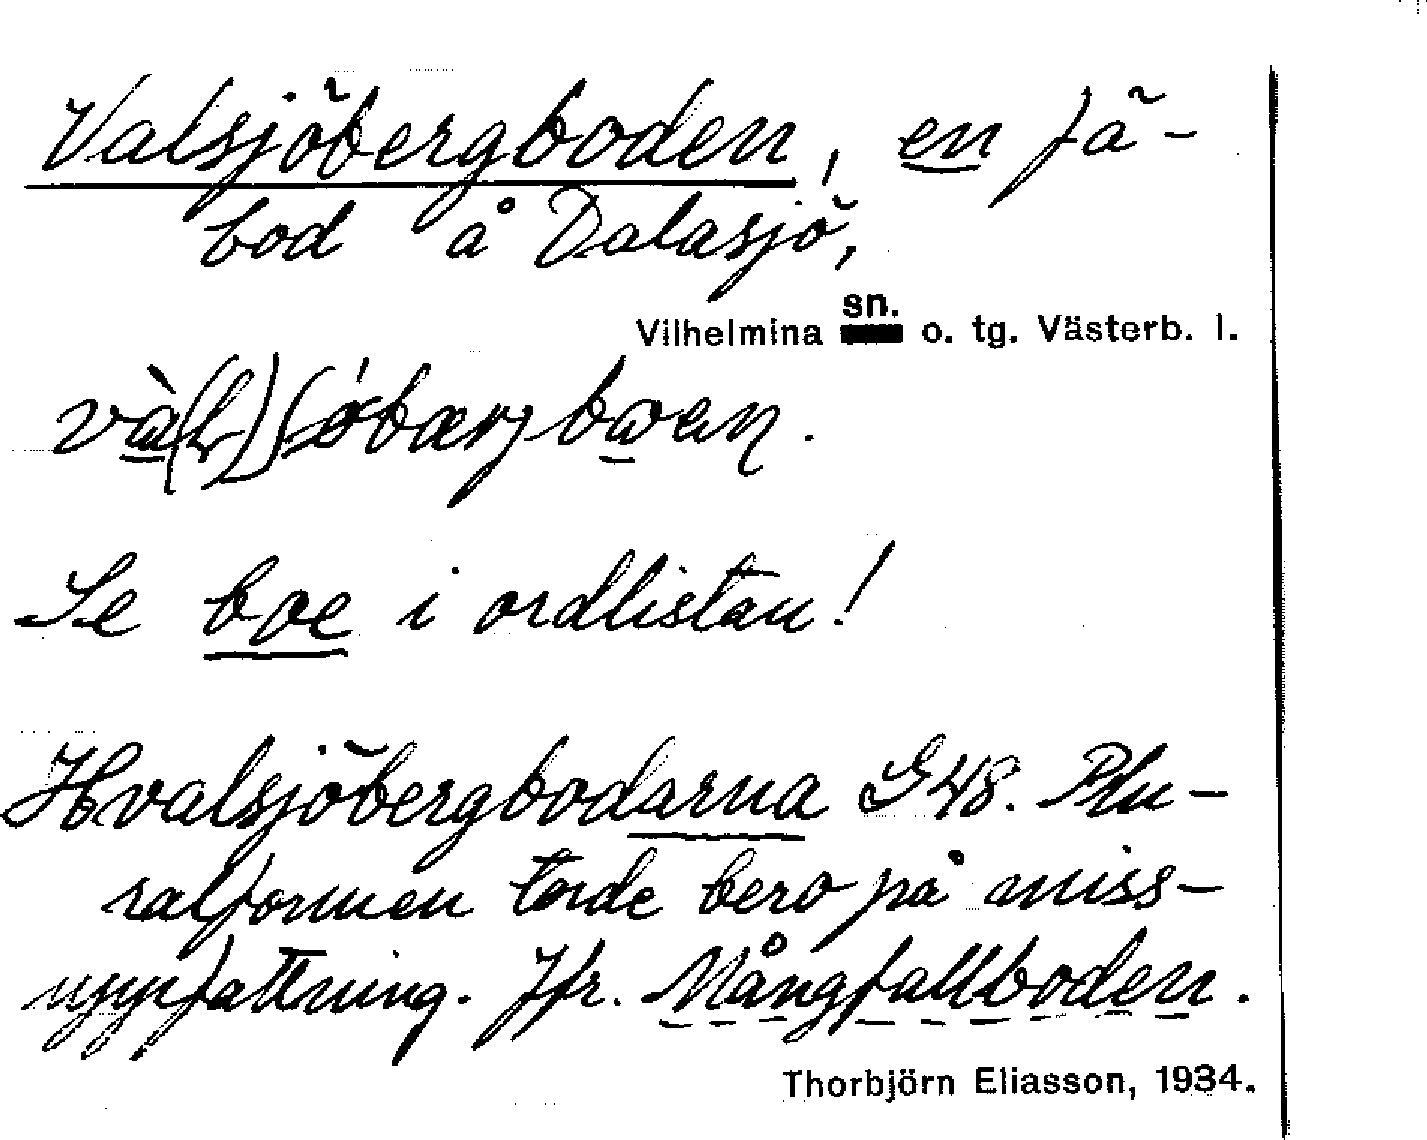 Valsjöbergboden, en fä-
bod å Dalasjö,
sn.
Vilhelmina o. tg. Västerb. l.
Se boe i ordlistan!
Hvalsjöbergbodarna G48. Plu-
ralformen torde bero på miss-
uppfattning. Jfr. Mångfallboden.
Thorbjörn Eliasson, 1934.